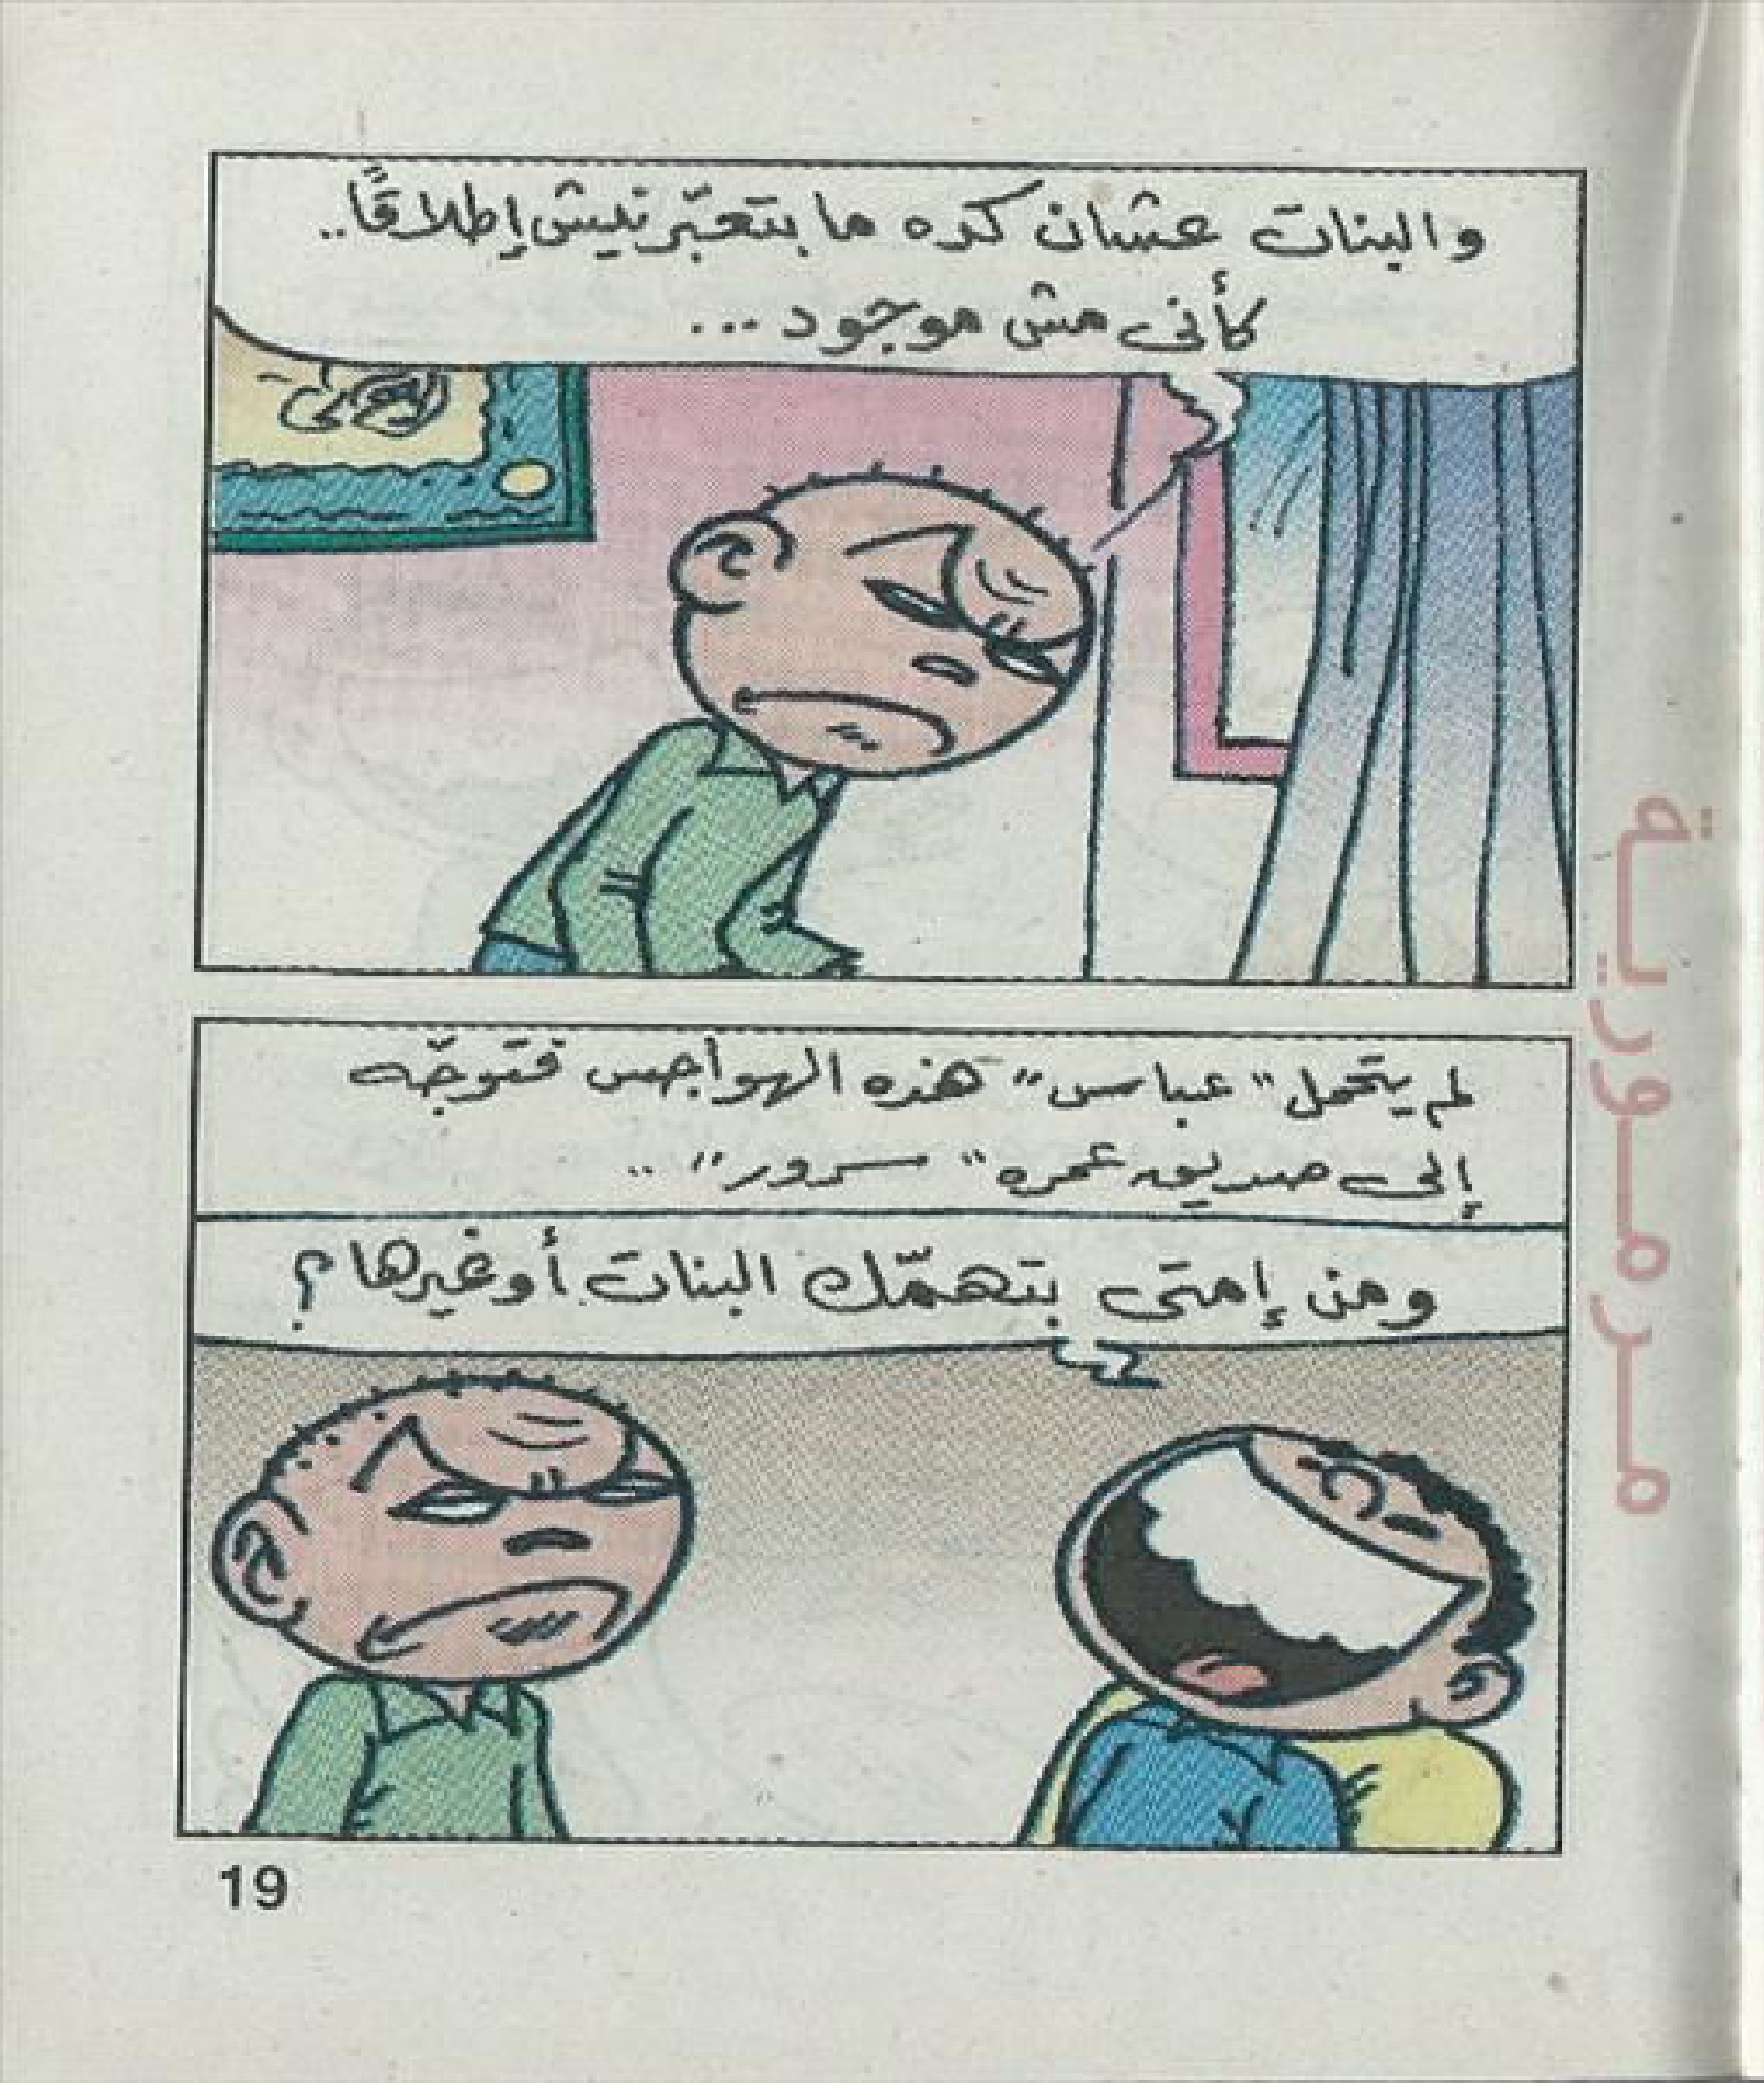 والبنات عشان كده ما بتعبّرنيش إطلاقًا..
كأنى مش موجود ...
لم يتحمل "عباس" هذه الهواجس فتوجّه
إلى صديق عمره "سرور" ..
ومن إمتى بتهمّك البنات أو غيرها؟
19
مرمورية